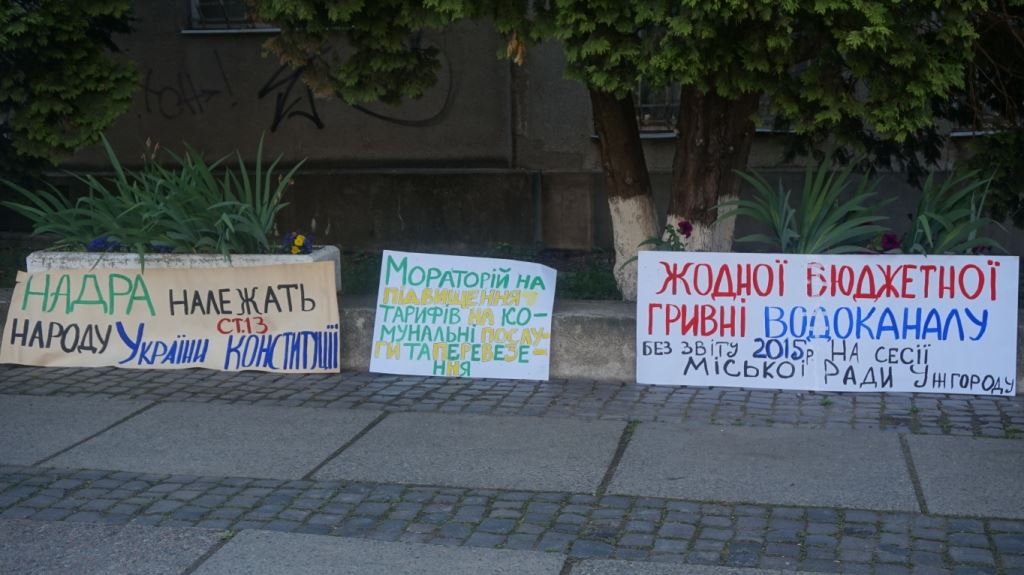 НАДРА НАЛЕЖАТЬ
НАРОДУ УКРАЇНИ СТ.13 КОНСТИТУЦІЇ
МОРАТОРІЙ НА
ПІДВИЩЕННЯ
ТАРИФІВ НА КО-
МУНАЛЬНІ ПОСЛУ-
ГИ ТА ПЕРЕВЕЗЕ-
ННЯ
ЖОДНОЇ БЮДЖЕТНОЇ
ГРИВНІ ВОДОКАНАЛУ
БЕЗ ЗВІТУ 2015р НА СЕСІЇ
МІСЬКОЇ РАДИ УЖГОРОДУ